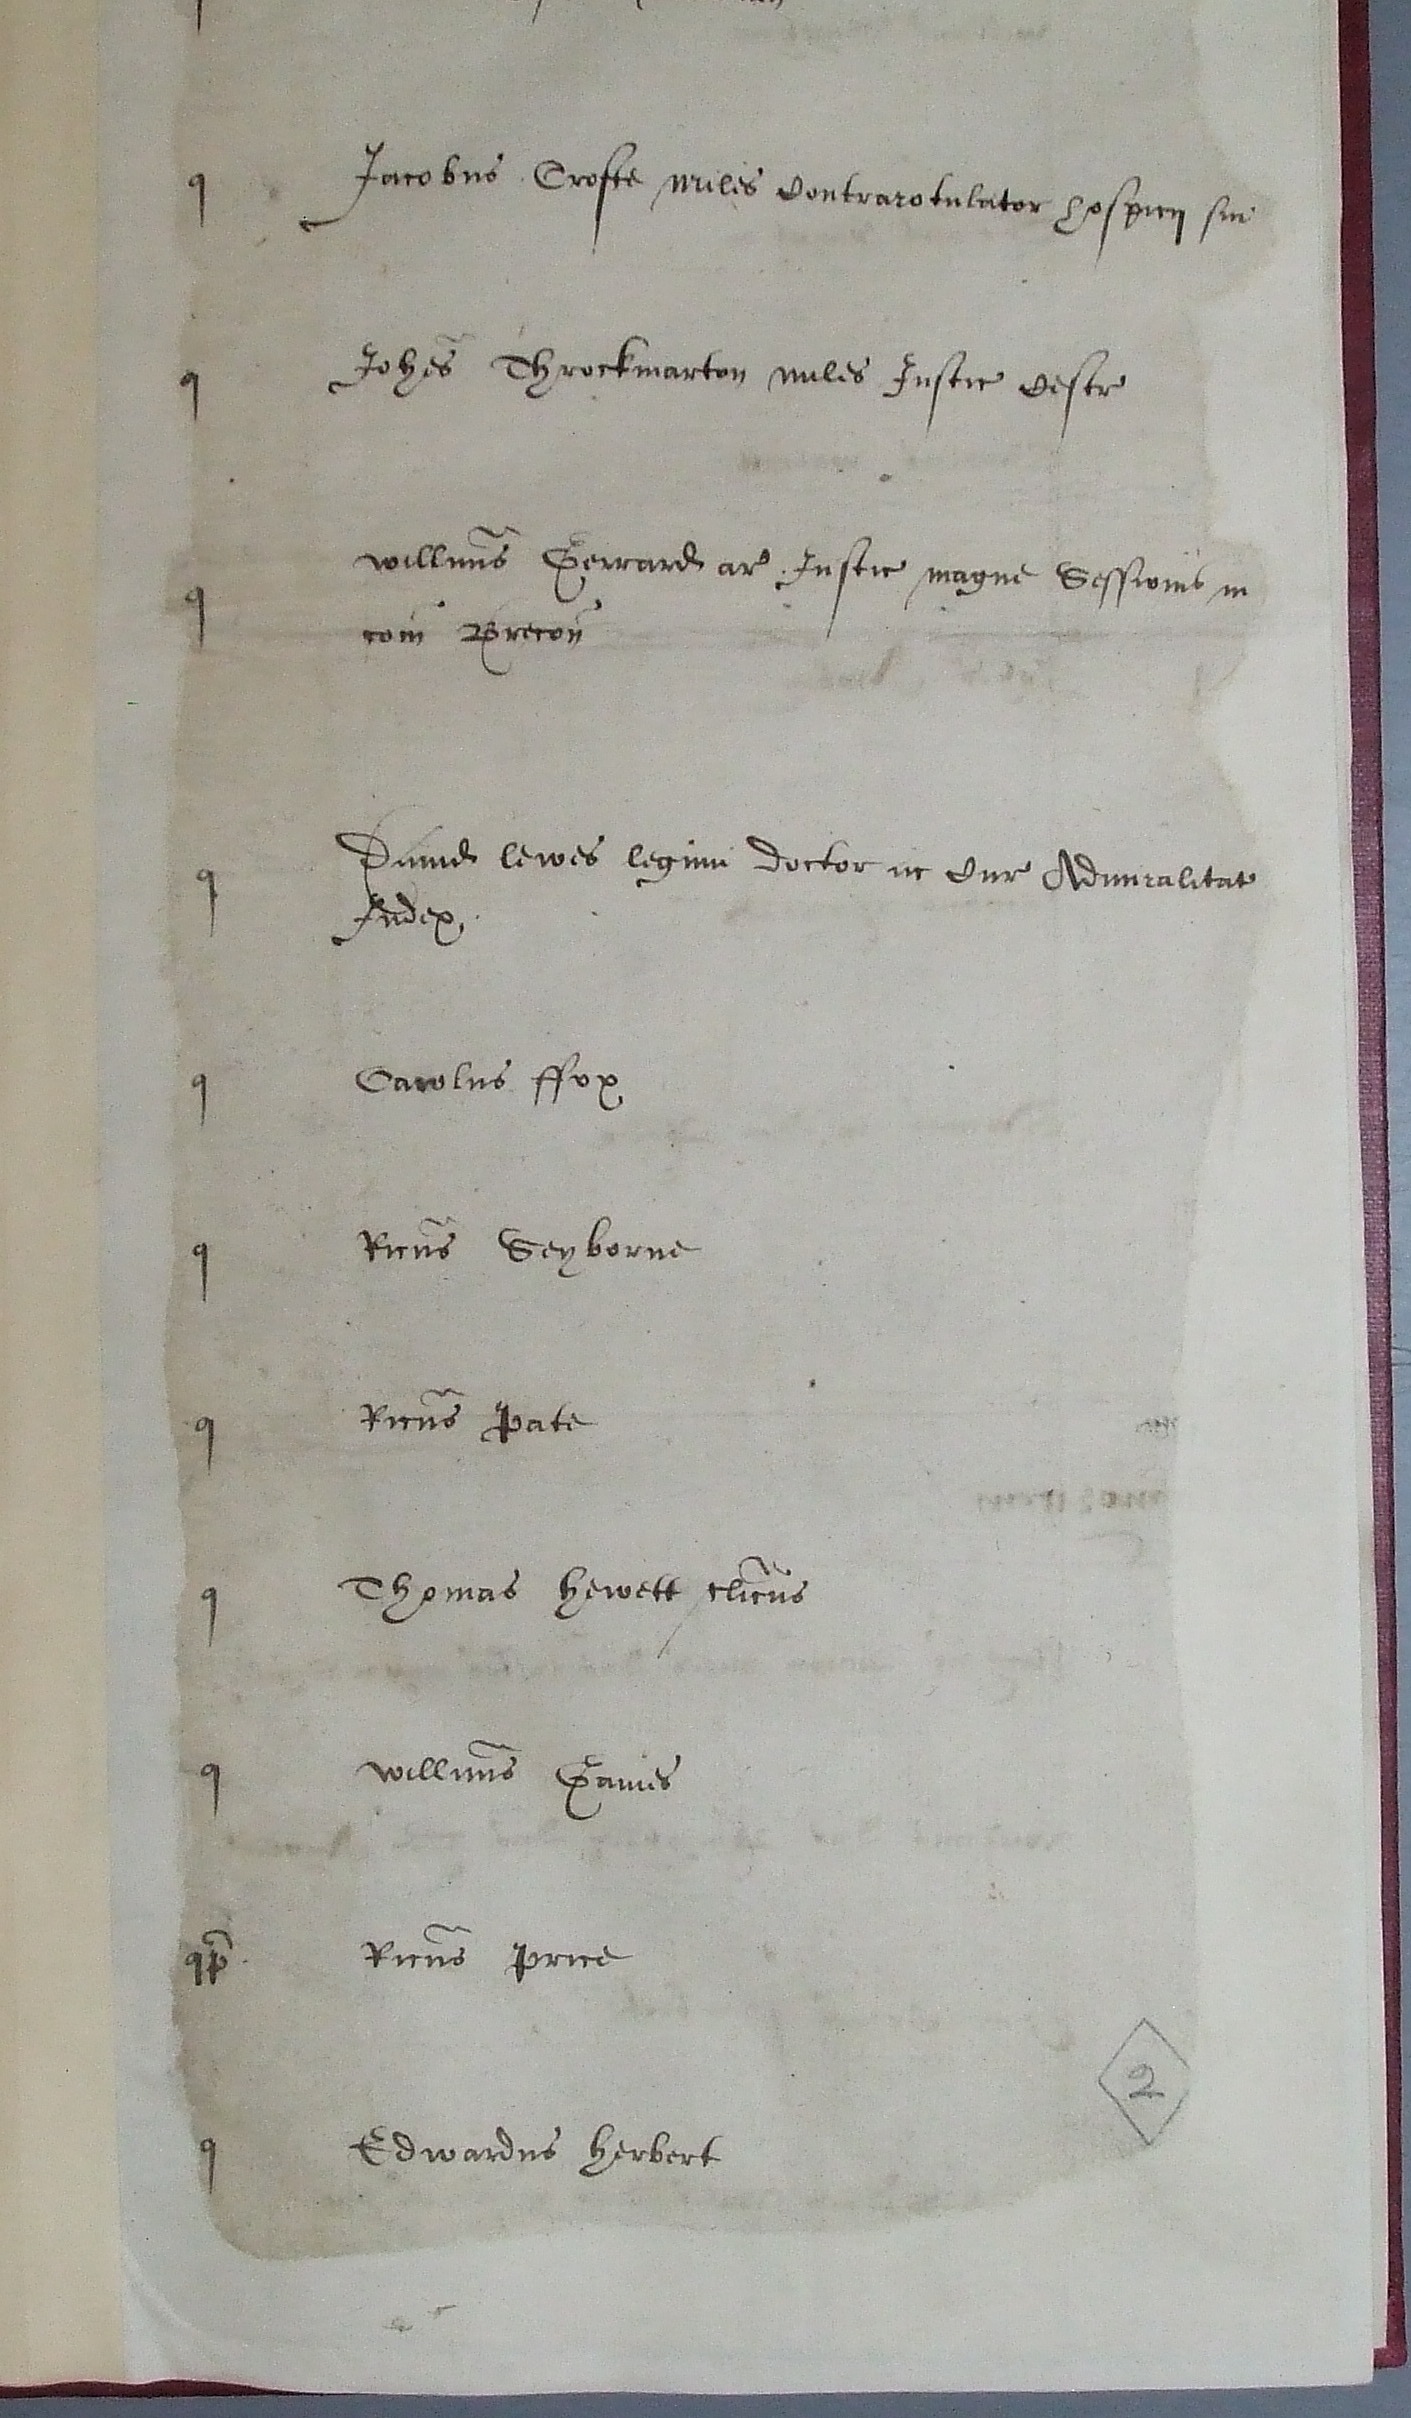 q Jacobus Crofte miles Contrarotulator hospicij sui
q Johēs Throckmarton miles Justic Cestr
q Willm̄s Gerrard ar Justic magne Sessionis in
com Brecon
q David lewes legum doctor ac Cur Admiralitat
Judex
q Carolus ffox
q Ricūs Seyborne
q Ricūs Pate
q Thomas hewett clicūs
q Willm̄s Games
q p̄ Ricūs Price
2
q Edwardus herbert